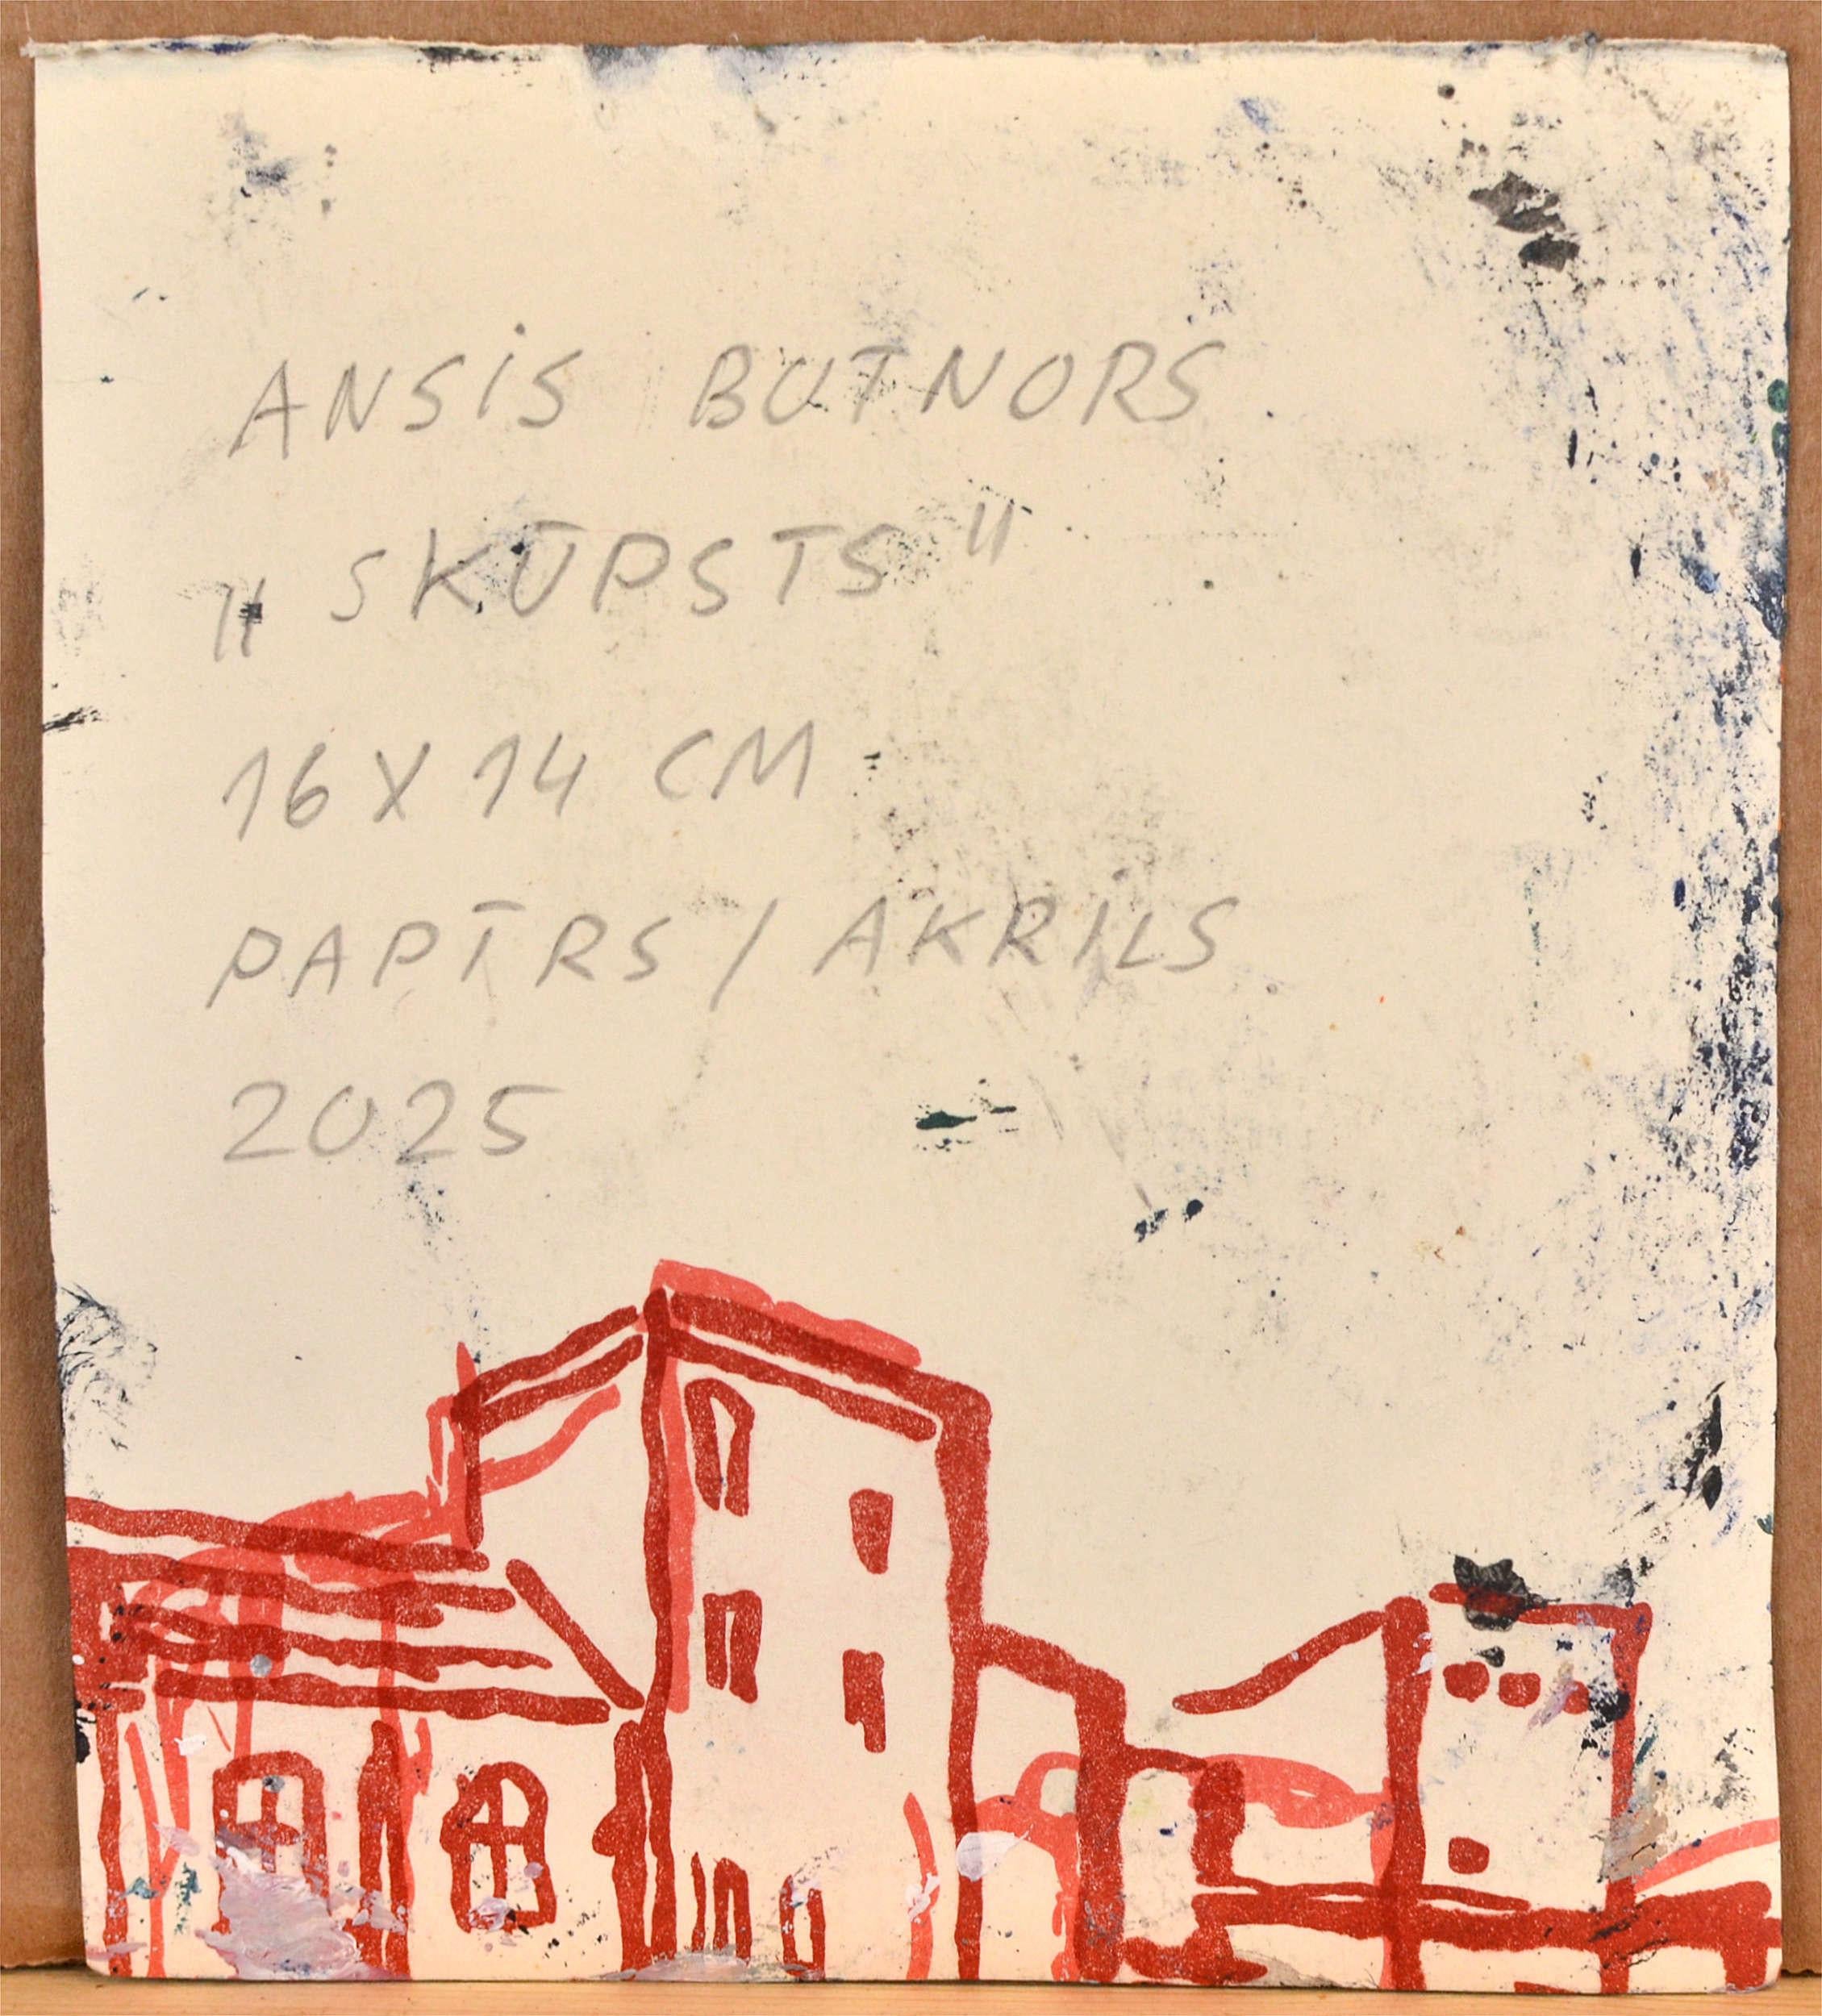 ANSIS BUTNORS
„SKŪPSTS"
16X14 CM
PAPĪRS / AKRILS
2025